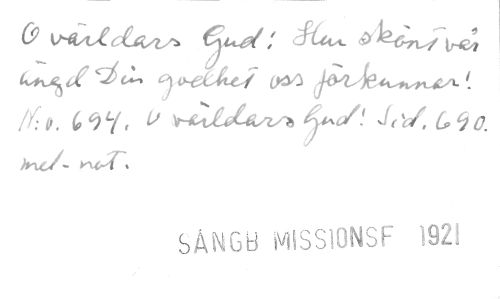 O världars Gud! Hur skönt vår
ängd Din godhet oss förkunnar!
N:o. 694. O världars Gud! Sid. 690.
mel-not.
SÅNGB MISSIONSF 1921